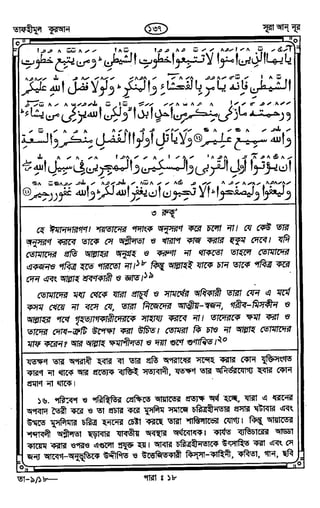 তাফহীমুল কুরআন
১৩৭
সূরা আন্ নূর
يٰٓاَيُّهَا الَّذِيْنَ اٰمَنُوْا لَا تَتَّبِعُوْا خُطُوٰتِ الشَّيْطٰنِ ؕ وَمَنْ يَّتَّبِعْ خُطُوٰتِ
الشَّيْطٰنِ فَاِنَّهٗ يَاْمُرُ بِالْفَحْشَآءِ وَالْمُنْكَرِ ؕ وَلَوْلَا فَضْلُ اللّٰهِ عَلَيْكُمْ
وَرَحْمَتُهٗ مَا زَكٰى مِنْكُمْ مِّنْ اَحَدٍ اَبَدًا ۙ وَّلٰكِنَّ اللّٰهَ يُزَكِّيْ مَنْ يَّشَآءُ ؕ
وَاللّٰهُ سَمِيْعٌ عَلِيْمٌ ﴿۲۱﴾ وَلَا يَاْتَلِ اُولُوا الْفَضْلِ مِنْكُمْ وَالسَّعَةِ
اَنْ يُّؤْتُوْٓا اُولِي الْقُرْبٰى وَالْمَسٰكِيْنَ وَالْمُهٰجِرِيْنَ فِيْ سَبِيْلِ اللّٰهِ ۖ
وَلْيَعْفُوْا وَلْيَصْفَحُوْا ؕ اَلَا تُحِبُّوْنَ اَنْ يَّغْفِرَ اللّٰهُ لَكُمْ ؕ وَاللّٰهُ غَفُوْرٌ رَّحِيْمٌ ﴿۲۲﴾
৩ রুকূ'
হে ঈমানদারগণ! শয়তানের পদাংক অনুসরণ করে চলো না। যে কেউ তার
অনুসরণ করবে তাকে সে অশ্লীলতা ও খারাপ কাজ করার হুকুম দেবে। যদি
তোমাদের প্রতি আল্লাহর অনুগ্রহ ও করুণা না থাকতো তাহলে তোমাদের
একজনও পবিত্র হতে পারতো না।১৮ কিন্তু আল্লাহই যাকে চান তাকে পবিত্র করে
দেন এবং আল্লাহ শ্রবণকারী ও জ্ঞাত।১৯
তোমাদের মধ্য থেকে যারা প্রাচুর্য ও সামর্থের অধিকারী তারা যেন এ মর্মে
কসম খেয়ে না বসে যে, তারা নিজেদের আত্মীয়-স্বজন, গরীব-মিসকীন ও
আল্লাহর পথে গৃহত্যাগকারীদেরকে সাহায্য করবে না। তাদেরকে ক্ষমা করা ও
তাদের দোষ-ত্রুটি উপেক্ষা করা উচিত। তোমরা কি চাও না আল্লাহ তোমাদের
মাফ করেন? আর আল্লাহ ক্ষমাশীলতা ও দয়া গুণে গুণান্বিত।২০
যতক্ষণ তার অপরাধী হবার বা তার প্রতি অপরাধের সন্দেহ করার কোন যুক্তিসংগত
কারণ না থাকে আর প্রত্যেক ব্যক্তিই সত্যবাদী, যতক্ষণ তার অনির্ভরযোগ্য হবার কোন
প্রমাণ না থাকে।
১৬. পরিবেশ ও পরিস্থিতির প্রেক্ষিতে আয়াতের প্রত্যক্ষ অর্থ হচ্ছে, যারা এ ধরনের
অপবাদ তৈরী করে ও তা প্রচার করে মুসলিম সমাজে চরিত্রহীনতার প্রসার ঘটাবার এবং
উম্মতে মুসলিমার চরিত্র হননের চেষ্টা করছে তারা শাস্তিলাভের যোগ্য। কিন্তু আয়াতের
শব্দাবলী অশ্লীলতা ছড়াবার যাবতীয় অবস্থার অর্থবোধক। কার্যত ব্যভিচারের আড্ডা
কায়েম করার ওপরও এগুলো প্রযুক্ত হয়। আবার চরিত্রহীনতাকে উৎসাহিত করা এবং সে
জন্য আবেগ-অনুভূতিকে উদ্দীপিত ও উত্তেজিতকারী কিস্সা-কাহিনী, কবিতা, গান, ছবি
তা-৯/১৮—
পারা ঃ ১৮